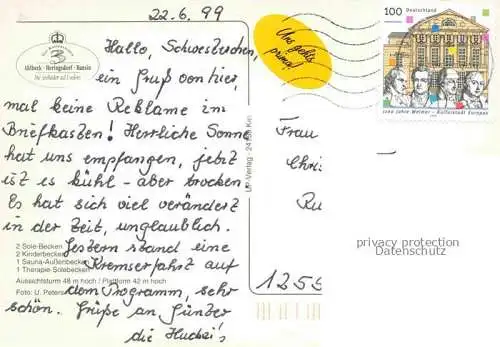 22.6.99
Hallo, Schwesterchen,
ein Gruß von hier,
mal keine Reklame im
Briefkasten! Herrliche Sonne
hat uns empfangen, jetzt
ist es kühl - aber trocken
Es hat sich viel verändert
in der Zeit, unglaublich.
Gestern stand eine
Kremserfahrt auf
dem Programm, sehr
schön. Grüße an Günter
die Huckei's
3
Ahlbeck · Heringsdorf · Bansin
2 Sole-Becken
2 Kinderbecken
1 Sauna-Außenbecken
1 Therapie-Solebecken
Aussichtsturm 48 m hoch / Plattform 42 m hoch
Foto: U. Peters
UP-Verlag
Uns geht's
prima!
100 Deutschland
1100 Jahre Weimar - Kulturstadt Europas
Frau
Chris
Ru
privacy protection
Datenschutz
1255